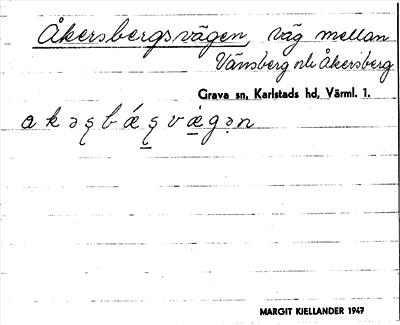 Åkersbergsvägen, väg mellan
Vänsberg och Åkersberg
Grava sn, Karlstads hd, Värml. 1.
MARGIT KIELLANDER 1947